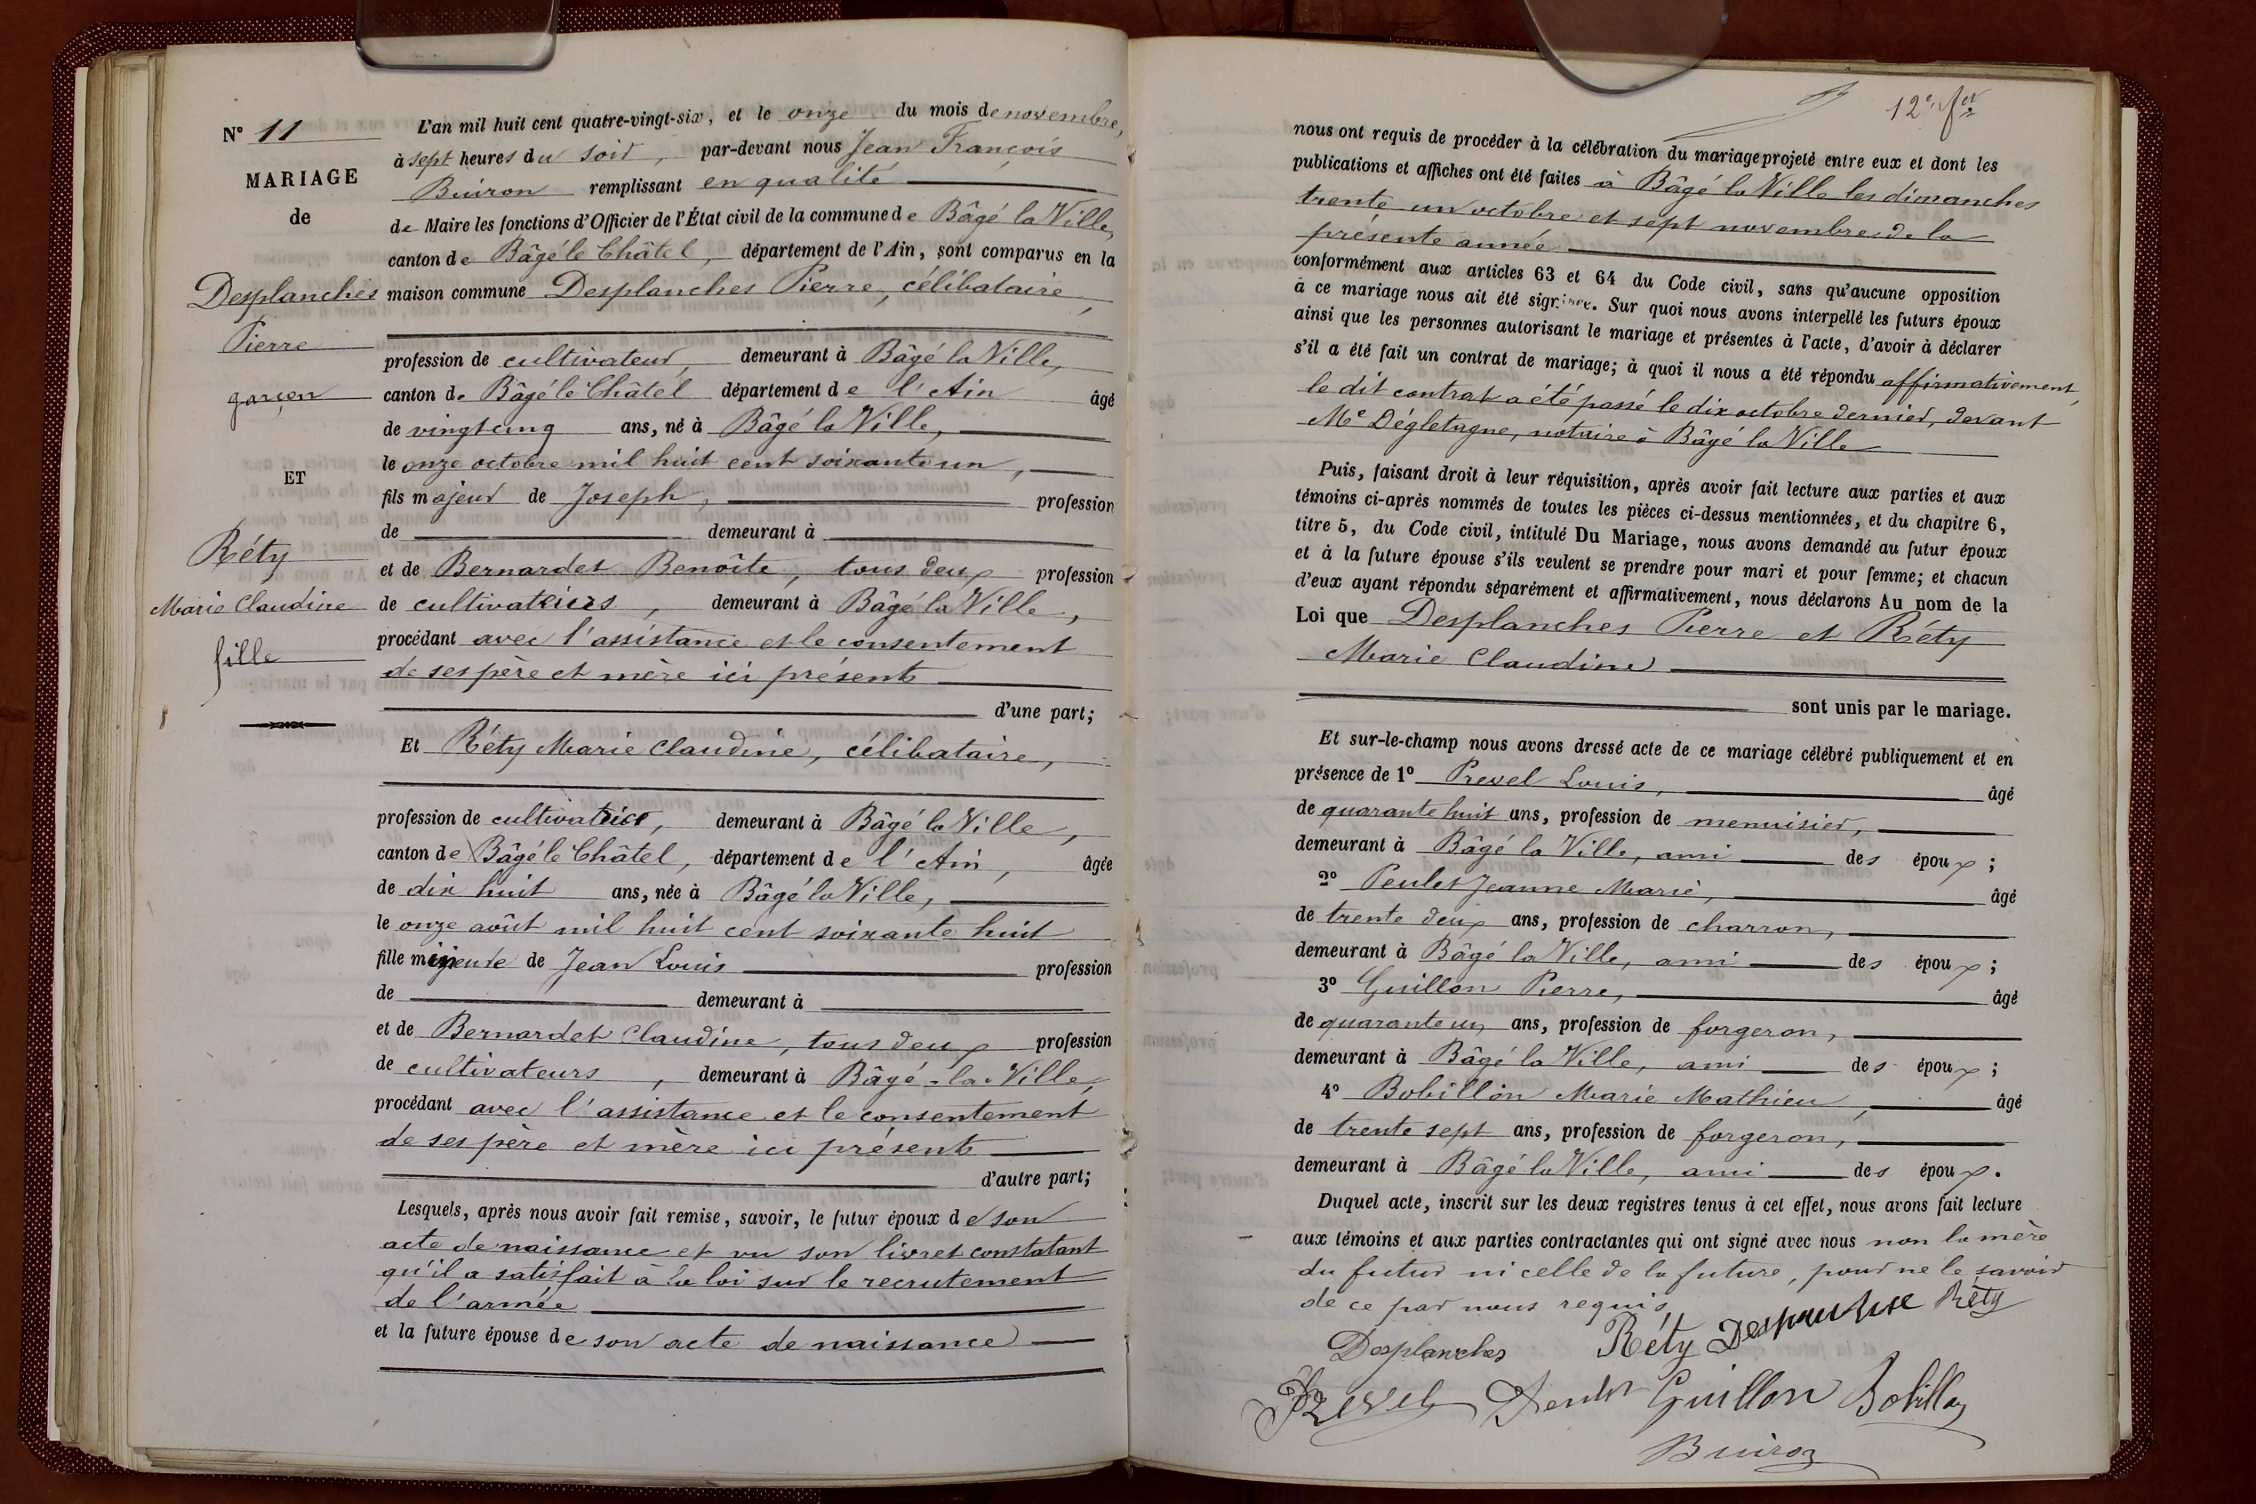 N° 11
MARIAGE
de
Desplanches
Pierre
garçon
ET
Réty
Marie Claudine
fille
L'an mil huit cent quatre-vingt-six, et le onze du mois de novembre,
à sept heures du soir, par-devant nous Jean François
Buiron remplissant en qualité
de Maire les fonctions d'Officier de l'État civil de la commune de Bâgé la Ville,
canton de Bâgé le Châtel, département de l'Ain, sont comparus en la
maison commune Desplanches Pierre, célibataire,
profession de cultivateur, demeurant à Bâgé la Ville,
canton de Bâgé le Châtel département de l'Ain âgé
de vingt cinq ans, né à Bâgé la Ville,
le onze octobre mil huit cent soixante un,
fils majeur de Joseph, profession
de demeurant à
et de Bernardet Benoîte, tous deux profession
de cultivateurs, demeurant à Bâgé la Ville,
procédant avec l'assistance et le consentement
de ses père et mère ici présents
d'une part;
Et Réty Marie Claudine, célibataire,
profession de cultivatrice, demeurant à Bâgé la Ville,
canton de Bâgé le Châtel, département de l'Ain, âgée
de dix huit ans, née à Bâgé la Ville,
le onze août mil huit cent soixante huit
fille mineure de Jean Louis profession
de demeurant à
et de Bernardet Claudine, tous deux profession
de cultivateurs, demeurant à Bâgé-la-Ville,
procédant avec l'assistance et le consentement
de ses père et mère ici présents
d'autre part;
Lesquels, après nous avoir fait remise, savoir, le futur époux de son
acte de naissance et vu son livret constatant
qu'il a satisfait à la loi sur le recrutement
de l'armée
et la future épouse de son acte de naissance
12e
nous ont requis de procéder à la célébration du mariage projeté entre eux et dont les
publications et affiches ont été faites à Bâgé la Ville les dimanches
trente un octobre et sept novembre de la
présente année
conformément aux articles 63 et 64 du Code civil, sans qu'aucune opposition
à ce mariage nous ait été signifiée. Sur quoi nous avons interpellé les futurs époux
ainsi que les personnes autorisant le mariage et présentes à l'acte, d'avoir à déclarer
s'il a été fait un contrat de mariage; à quoi il nous a été répondu affirmativement,
le dit contrat a été passé le dix octobre dernier, devant
Me Dégletagne, notaire à Bâgé la Ville
Puis, faisant droit à leur réquisition, après avoir fait lecture aux parties et aux
témoins ci-après nommés de toutes les pièces ci-dessus mentionnées, et du chapitre 6,
titre 5, du Code civil, intitulé Du Mariage, nous avons demandé au futur époux
et à la future épouse s'ils veulent se prendre pour mari et pour femme; et chacun
d'eux ayant répondu séparément et affirmativement, nous déclarons Au nom de la
Loi que Desplanches Pierre et Réty
Marie Claudine
sont unis par le mariage.
Et sur-le-champ nous avons dressé acte de ce mariage célébré publiquement et en
présence de 1° Prevel Louis, âgé
de quarante huit ans, profession de menuisier,
demeurant à Bâgé la Ville, ami des époux;
2° Peulet Jeanne Marie, âgé
de trente deux ans, profession de charron,
demeurant à Bâgé la Ville, ami des époux;
3° Guillon Pierre, âgé
de quarante un ans, profession de forgeron,
demeurant à Bâgé la Ville, ami des époux;
4° Bobillon Marie Mathieu, âgé
de trente sept ans, profession de forgeron,
demeurant à Bâgé la Ville, ami des époux.
Duquel acte, inscrit sur les deux registres tenus à cet effet, nous avons fait lecture
aux témoins et aux parties contractantes qui ont signé avec nous non la mère
du futur ni celle de la future, pour ne le savoir
de ce par nous requis
Desplanches Réty Desplanche Réty
Prevel Peulet Guillon Bobillon
Buiron